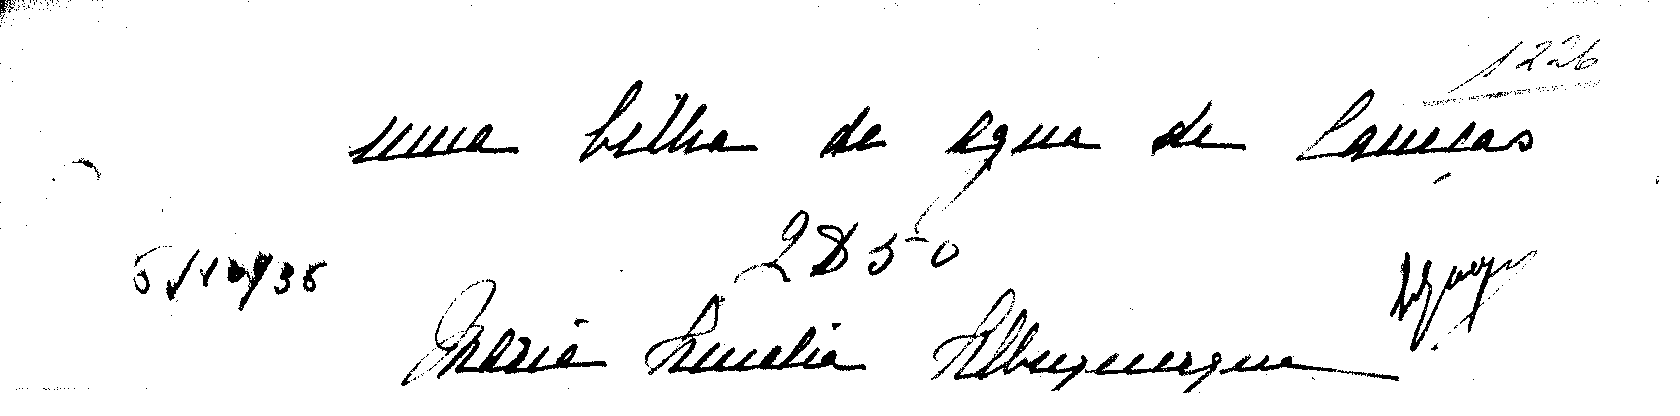 1226
uma bilha de agua de Caneças
2$50
5/12/36
Maria Amelia Albuquerque